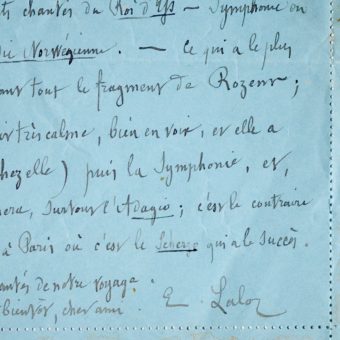 chantés du Roi d'Ys – Symphonie en
Norwégienne. – ce qui a le plus
tout le fragment de Rozenn ;
très calme, bien en voix, et elle a
chez elle) puis la Symphonie, et,
surtout l'Adagio ; c'est le contraire
à Paris où c'est le Scherzo qui a le succès.
de notre voyage
bientôt, cher ami. E. Lalo